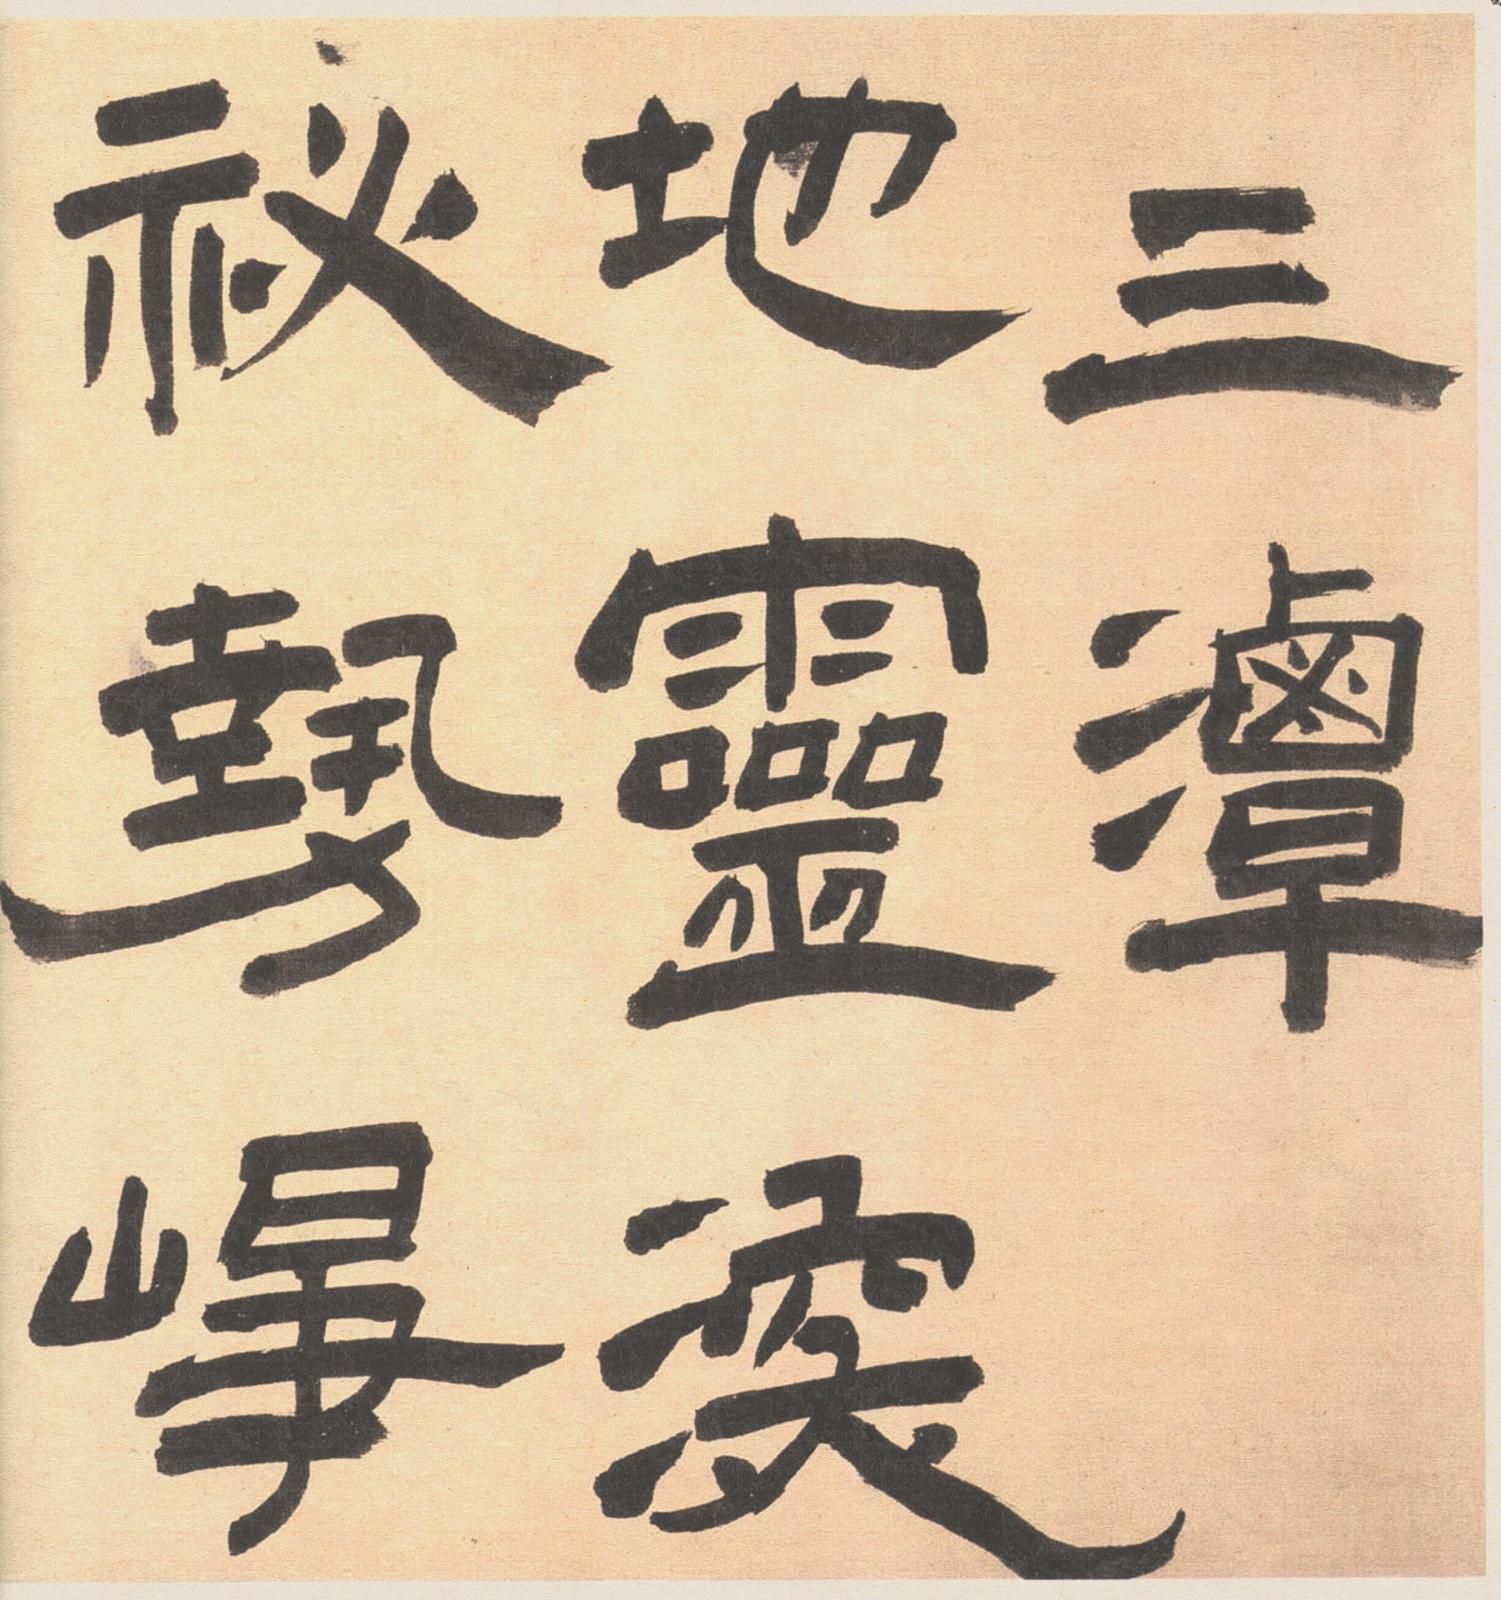 三潭
地靈深
祕勢崢